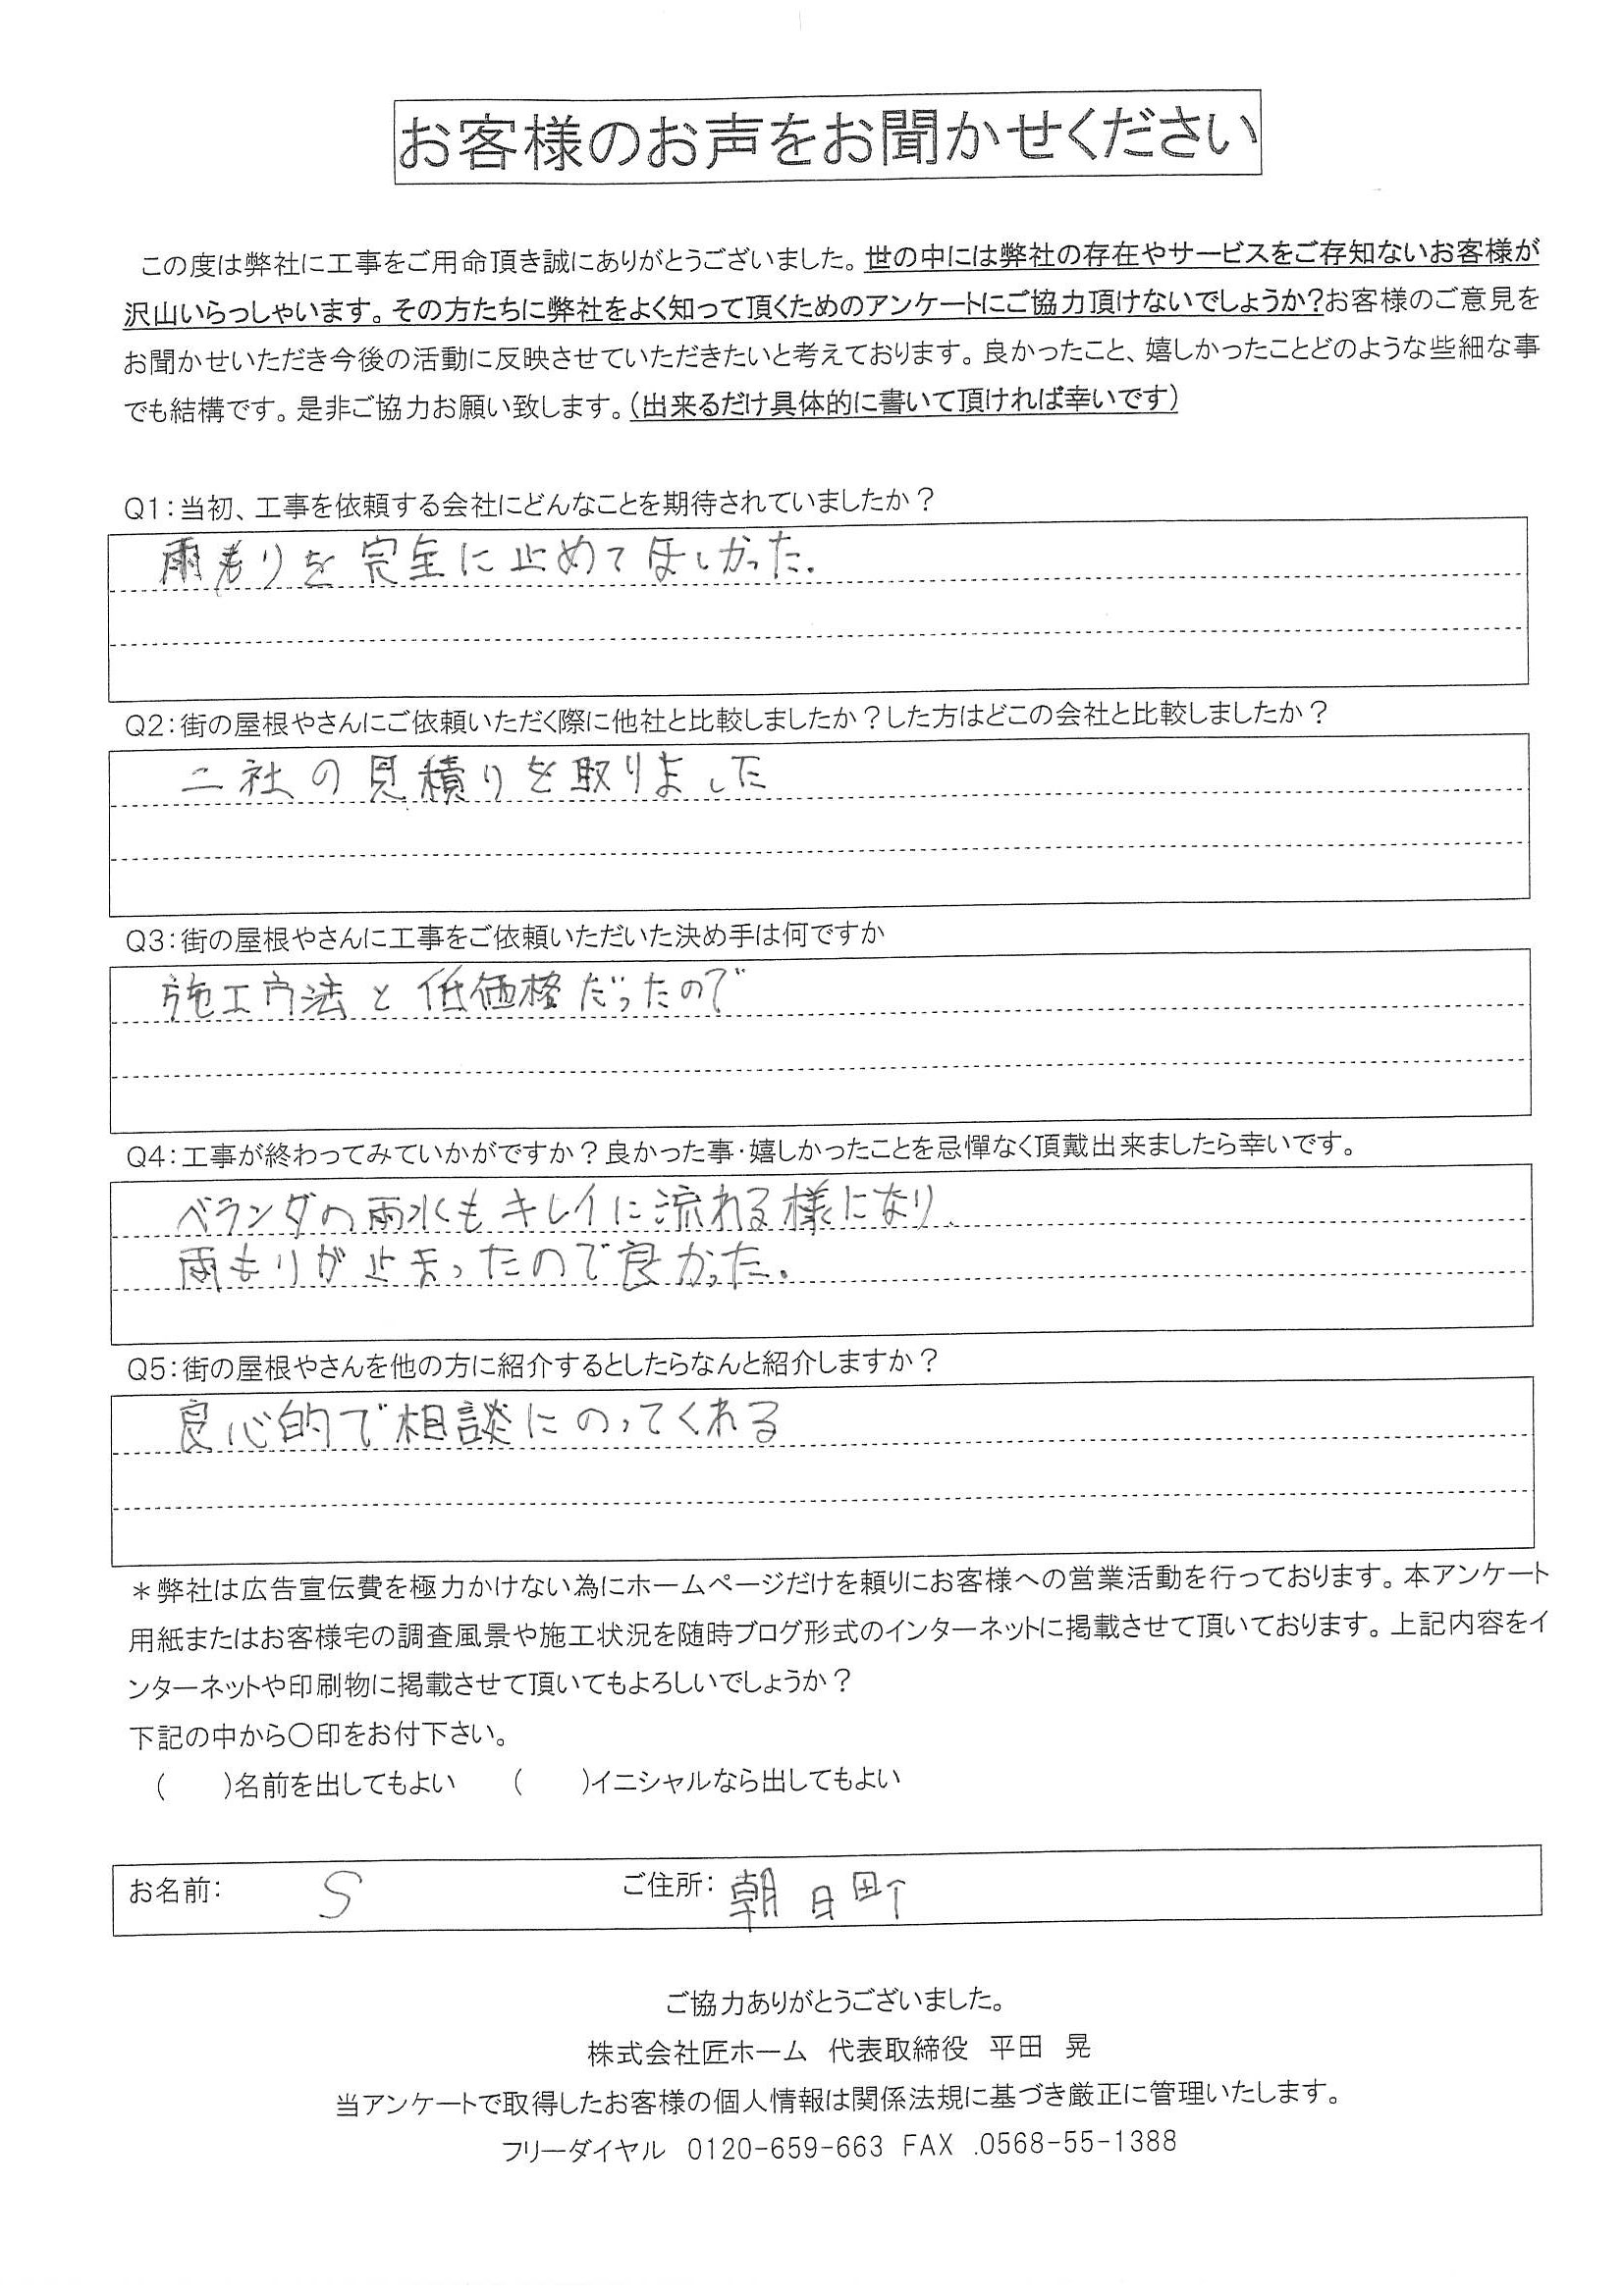 お客様のお声をお聞かせください
この度は弊社に工事をご用命頂き誠にありがとうございました。世の中には弊社の存在やサービスをご存知ないお客様が
沢山いらっしゃいます。その方たちに弊社をよく知って頂くためのアンケートにご協力頂けないでしょうか?お客様のご意見を
お聞かせいただき今後の活動に反映させていただきたいと考えております。良かったこと、嬉しかったことどのような些細な事
でも結構です。是非ご協力お願い致します。(出来るだけ具体的に書いて頂ければ幸いです)
Q1:当初、工事を依頼する会社にどんなことを期待されていましたか?
雨もりを完全に止めてほしかった.
Q2:街の屋根やさんにご依頼いただく際に他社と比較しましたか?した方はどこの会社と比較しましたか?
二社の見積りを取りました
Q3:街の屋根やさんに工事をご依頼いただいた決め手は何ですか
施工方法と低価格だったので
Q4:工事が終わってみていかがですか?良かった事・嬉しかったことを忌憚なく頂戴出来ましたら幸いです。
ベランダの雨水もキレイに流れる様になり、
雨もりが止まったので良かった.
Q5:街の屋根やさんを他の方に紹介するとしたらなんと紹介しますか?
良心的で相談にのってくれる
*弊社は広告宣伝費を極力かけない為にホームページだけを頼りにお客様への営業活動を行っております。本アンケート
用紙またはお客様宅の調査風景や施工状況を随時ブログ形式のインターネットに掲載させて頂いております。上記内容をイ
ンターネットや印刷物に掲載させて頂いてもよろしいでしょうか?
下記の中から〇印をお付下さい。
(　　)名前を出してもよい　　(　　)イニシャルなら出してもよい
お名前:　S　ご住所:　朝日町
ご協力ありがとうございました。
株式会社匠ホーム　代表取締役　平田　晃
当アンケートで取得したお客様の個人情報は関係法規に基づき厳正に管理いたします。
フリーダイヤル　0120-659-663 FAX .0568-55-1388